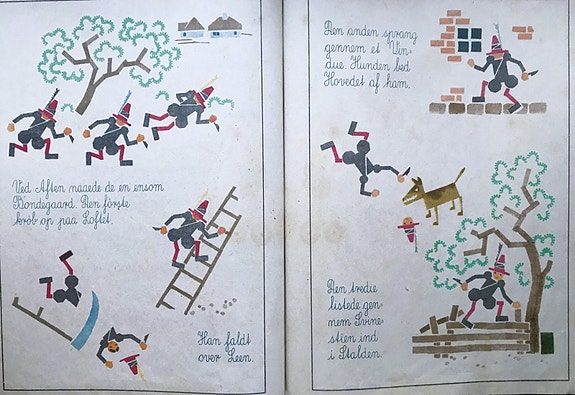 Ved Aften naaede de en ensom
Bondegaard. Den förste
kröb op paa Loftet.
Han faldt
over Leen.
Den anden sprang
gennem et Vin-
due. Hunden bed
Hovedet af ham.
Den tredie
listede gen-
nem Svine-
stien ind
i Stalden.